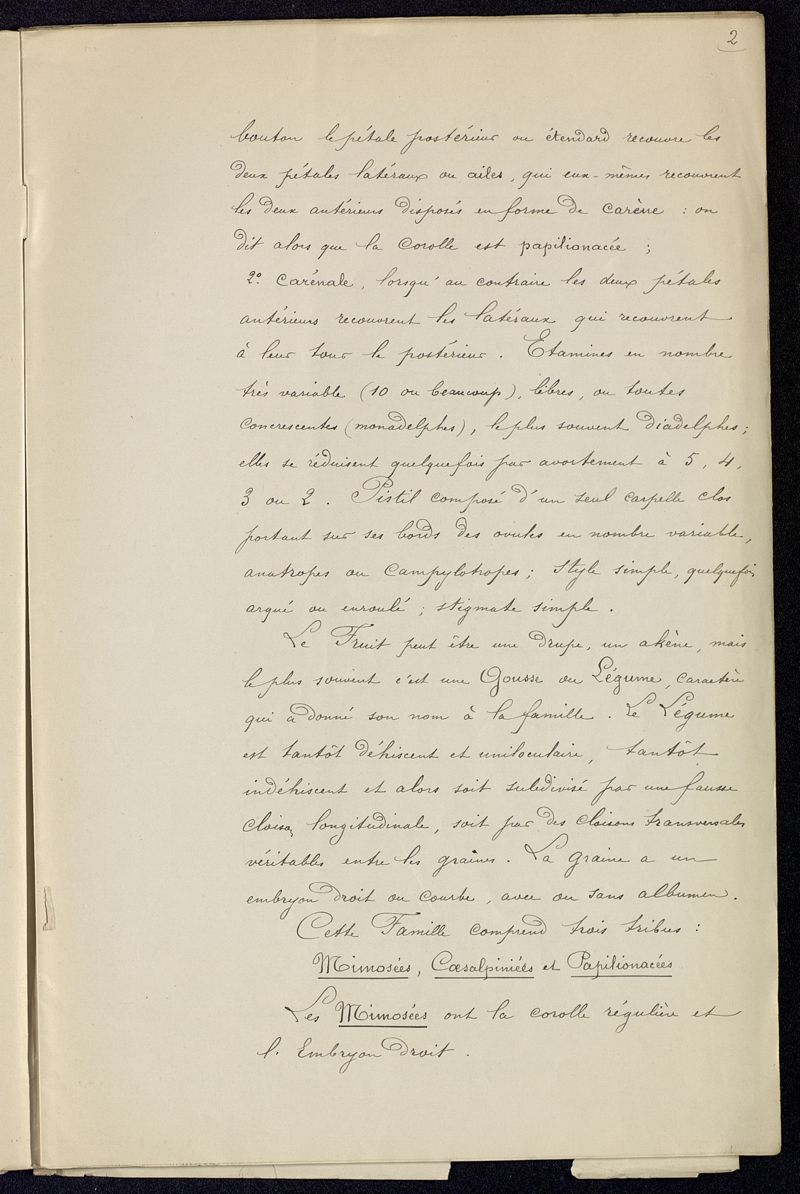 2
bouton le pétale postérieur ou étendard recouvre les
deux pétales latéraux ou ailes, qui eux-mêmes recouvrent
les deux antérieurs disposés en forme de carène : on
dit alors que la Corolle est papilionacée ;
2º Carénale, lorsqu'au contraire les deux pétales
antérieurs recouvrent les latéraux qui recouvrent
à leur tour le postérieur. Etamines en nombre
très variable (10 ou beaucoup), libres, ou toutes
concrescentes (monadelphes), le plus souvent Diadelphes;
elles se réduisent quelquefois par avortement à 5, 4,
3 ou 2. Pistil composé d'un seul carpelle clos
portant sur ses bords des ovules en nombre variable,
anatropes ou campylotropes ; style simple, quelquefois
arqué ou enroulé ; stigmate simple.
Le Fruit peut être une drupe, un akène, mais
le plus souvent c'est une Gousse ou Légume, caractère
qui a donné son nom à la famille. Le Légume
est tantôt déhiscent et uniloculaire, tantôt
indéhiscent et alors soit subdivisé par une fausse
cloison longitudinale, soit par des cloisons transversales
véritables entre les graines. La graine a un
embryon droit ou courbe, avec ou sans albumen.
Cette Famille comprend trois tribus :
Mimosées, Cœsalpiniées et Papilionacées
Les Mimosées ont la corolle régulière et
l'Embryon droit.